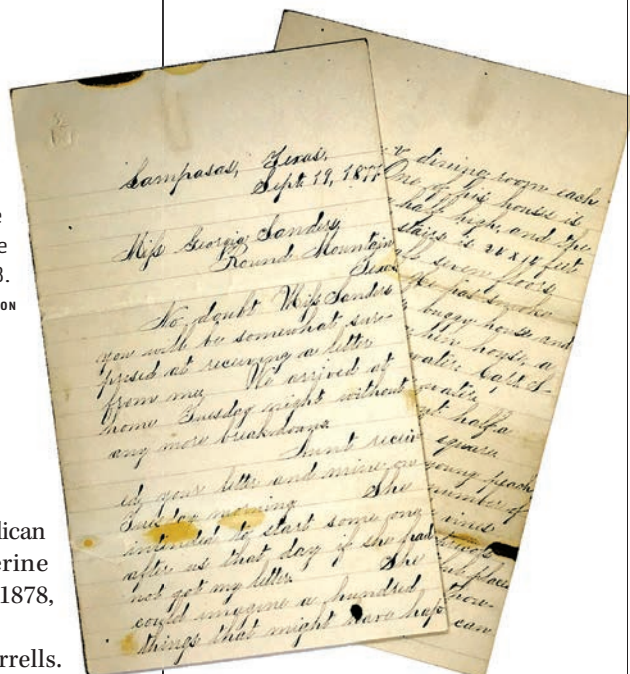 e
e
3.
ON
lican
erine
1878,
rrells.
Lampasas, Texas,
Sept. 19, 1877
Miss Georgia Sanders,
Round Mountain
Texas
No doubt Miss Sanders
you will be somewhat sur-
prised at receiving a letter
from me. We arrived at
home Tuesday night without
any more breakdowns
Aunt receiv
ed your letter and mine on
Tuesday morning She
intended to start some one
after us that day if she had
not got my letter. She
could imagine a hundred
things that might have hap
dining room each
One of his houses is
half high, and the
stairs is 24 x 14 feet
seven floors
He has smoke
buggy house and
hen house, a
water,
water,
half a
square
young peach
number of
vines
place
can